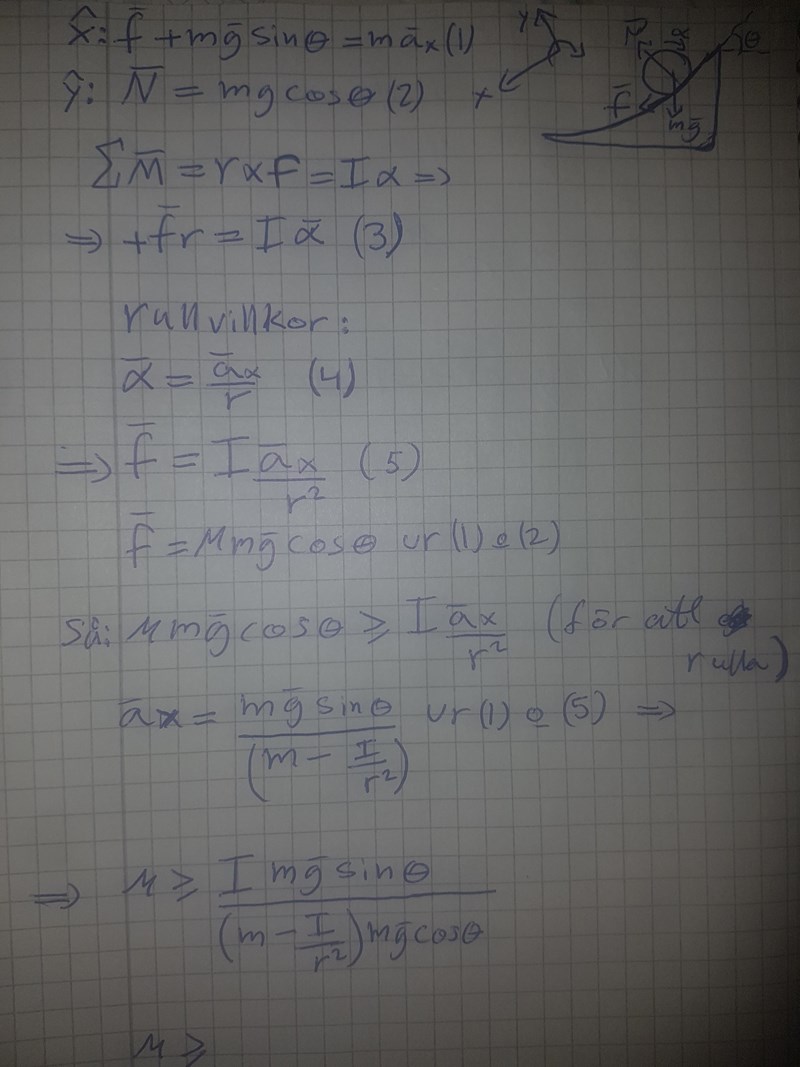 x̂: f̄ + mḡ sinθ = māₓ (1)
ŷ: N̄ = mg cosθ (2)
y
x
N̄
α
θ
f̄
mḡ
∑M̄ = r×f = Iα ⇒
⇒ +f̄r = Iᾱ (3)
rullvillkor:
ᾱ = āx/r (4)
⇒ f̄ = I āx/r² (5)
f̄ = μmḡcosθ ur (1) o (2)
Så: μmḡcosθ ≥ I āx/r² (för att
rulla)
āx = mḡsinθ/(m − I/r²) ur (1) o (5) ⇒
⇒ μ ≥ I mḡsinθ/(m − I/r²)mḡcosθ
μ ≥